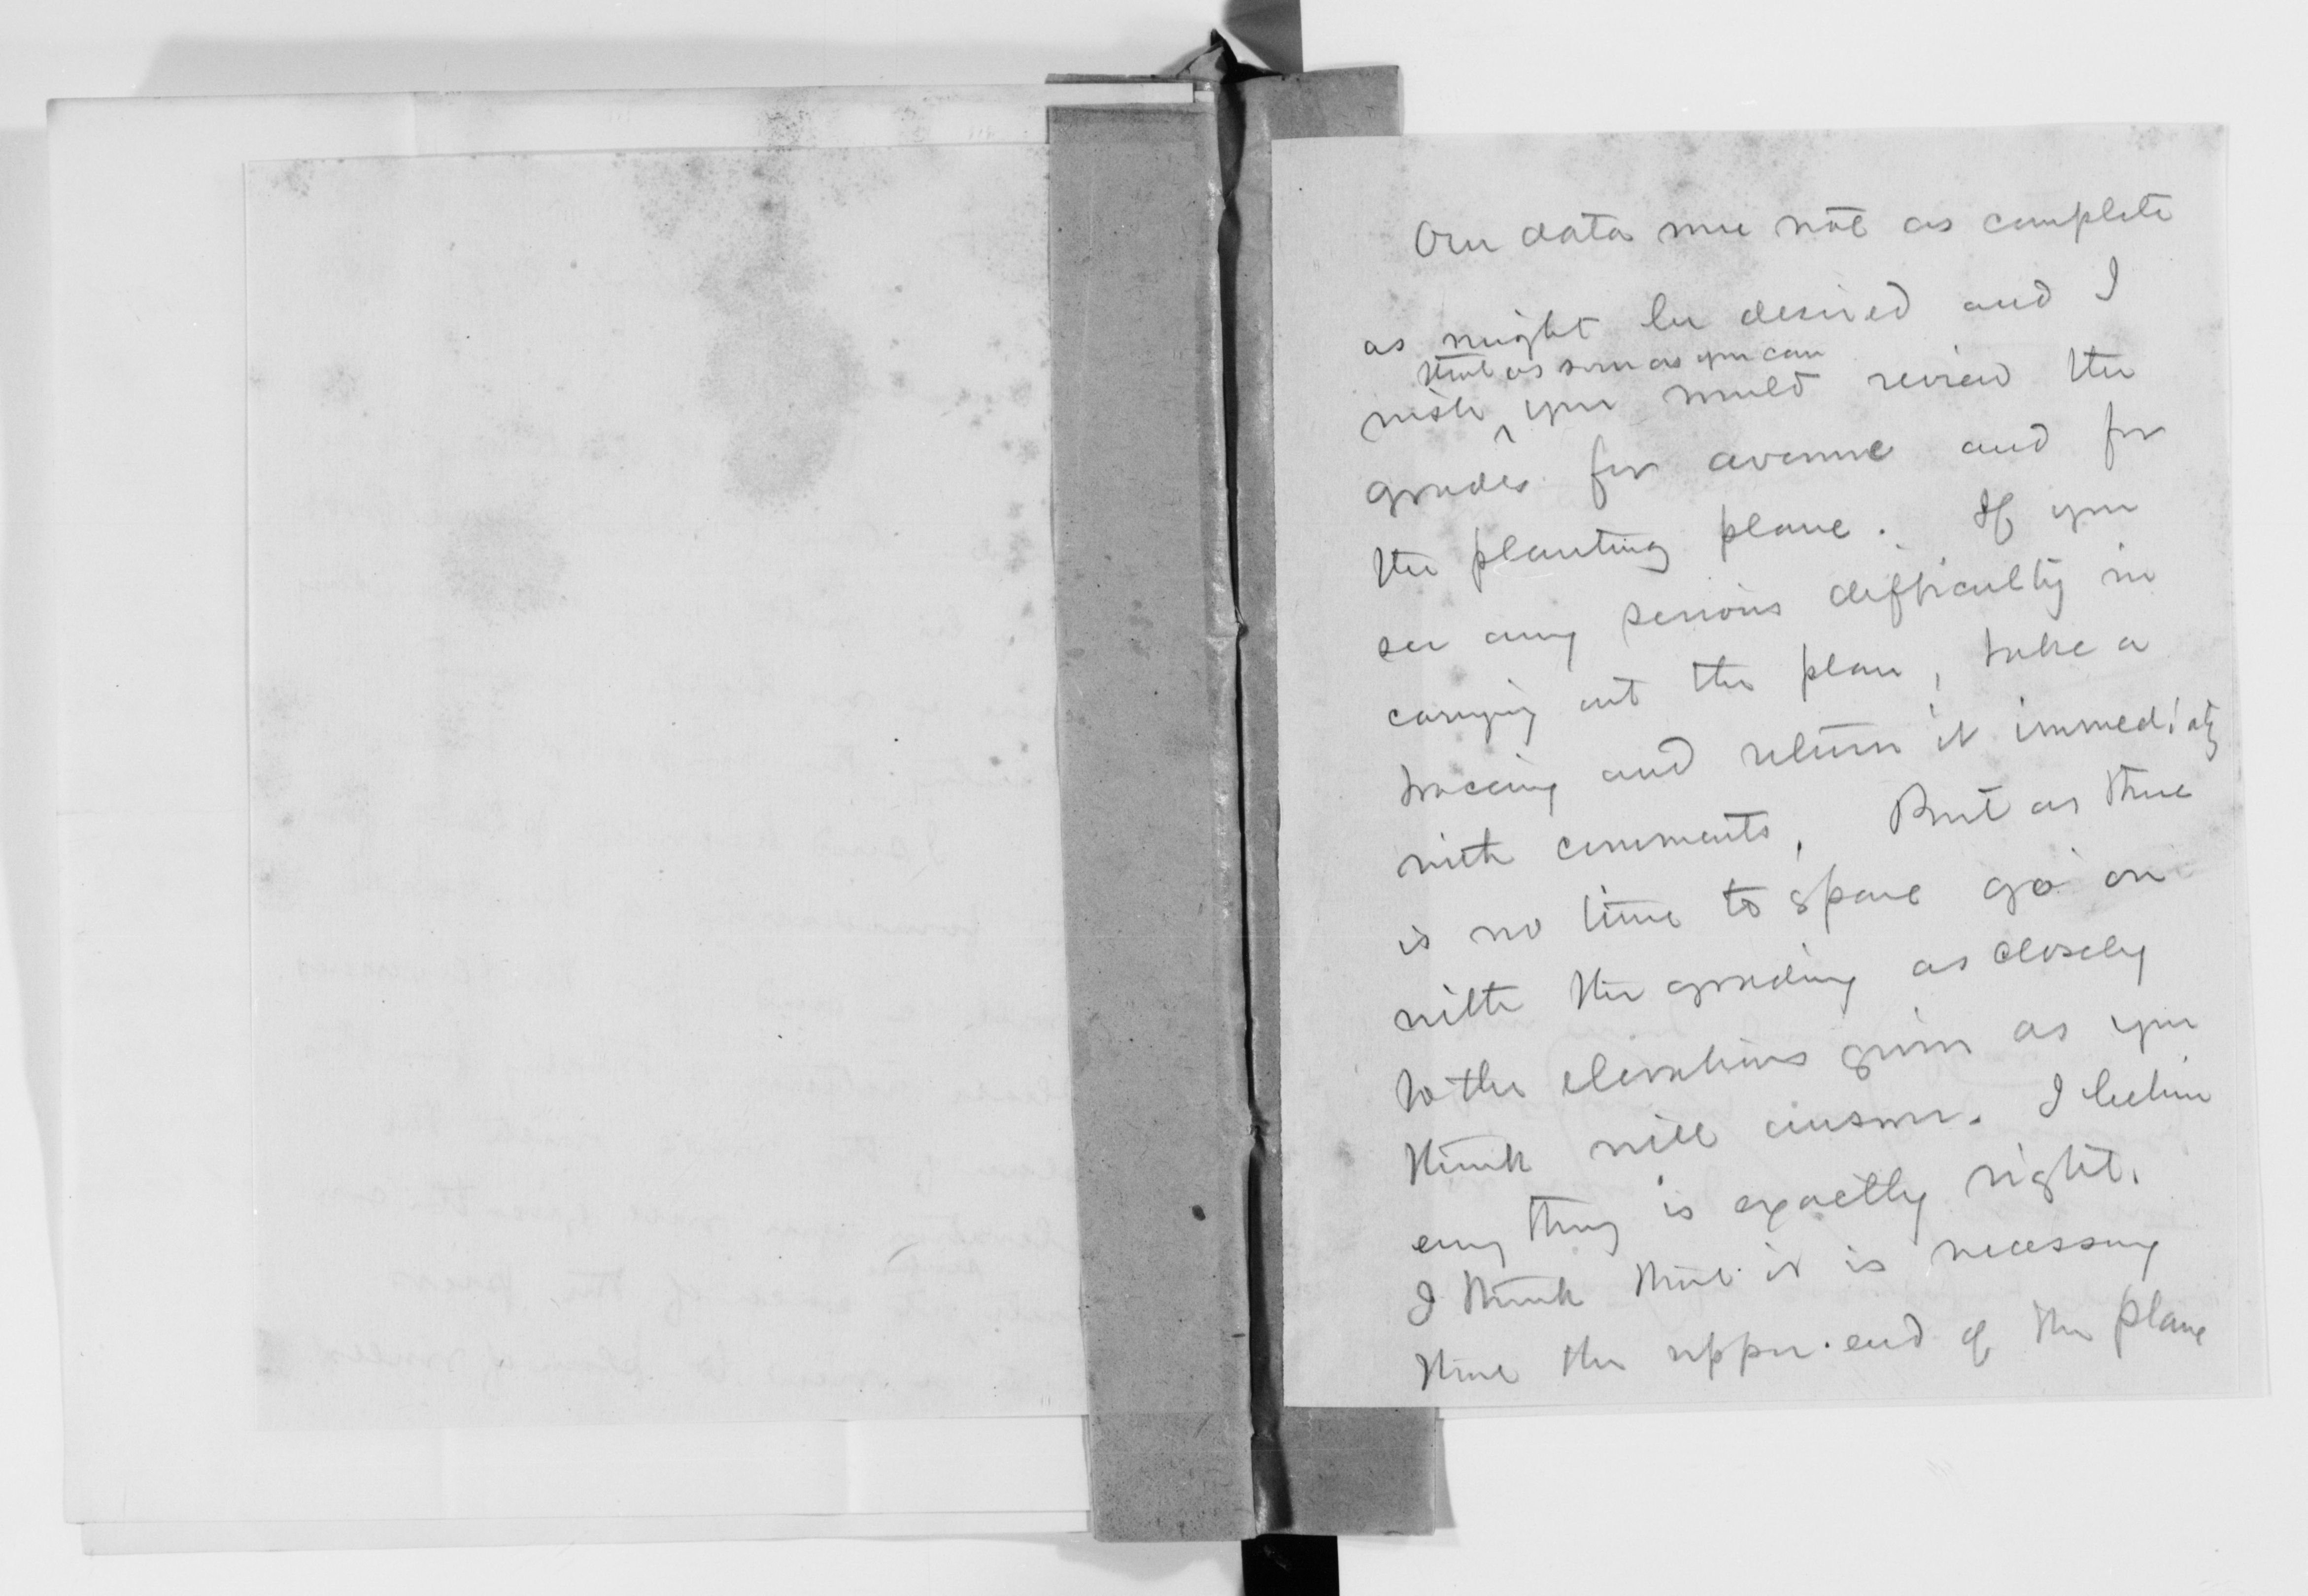 Our data were not as complete
as might be desired and I
that as soon as you can
wish ^ you would review the
grades for avenue and for
the planting plane. If you
see any serious difficulty in
carrying out the plan, take a
tracing and return it immediatly
with comments. But as there
is no time to spare go on
with the grading as closely
to the elevations given as you
think will answer. I believe
every thing is exactly right.
I think that it is necessary
that the upper end of the plane